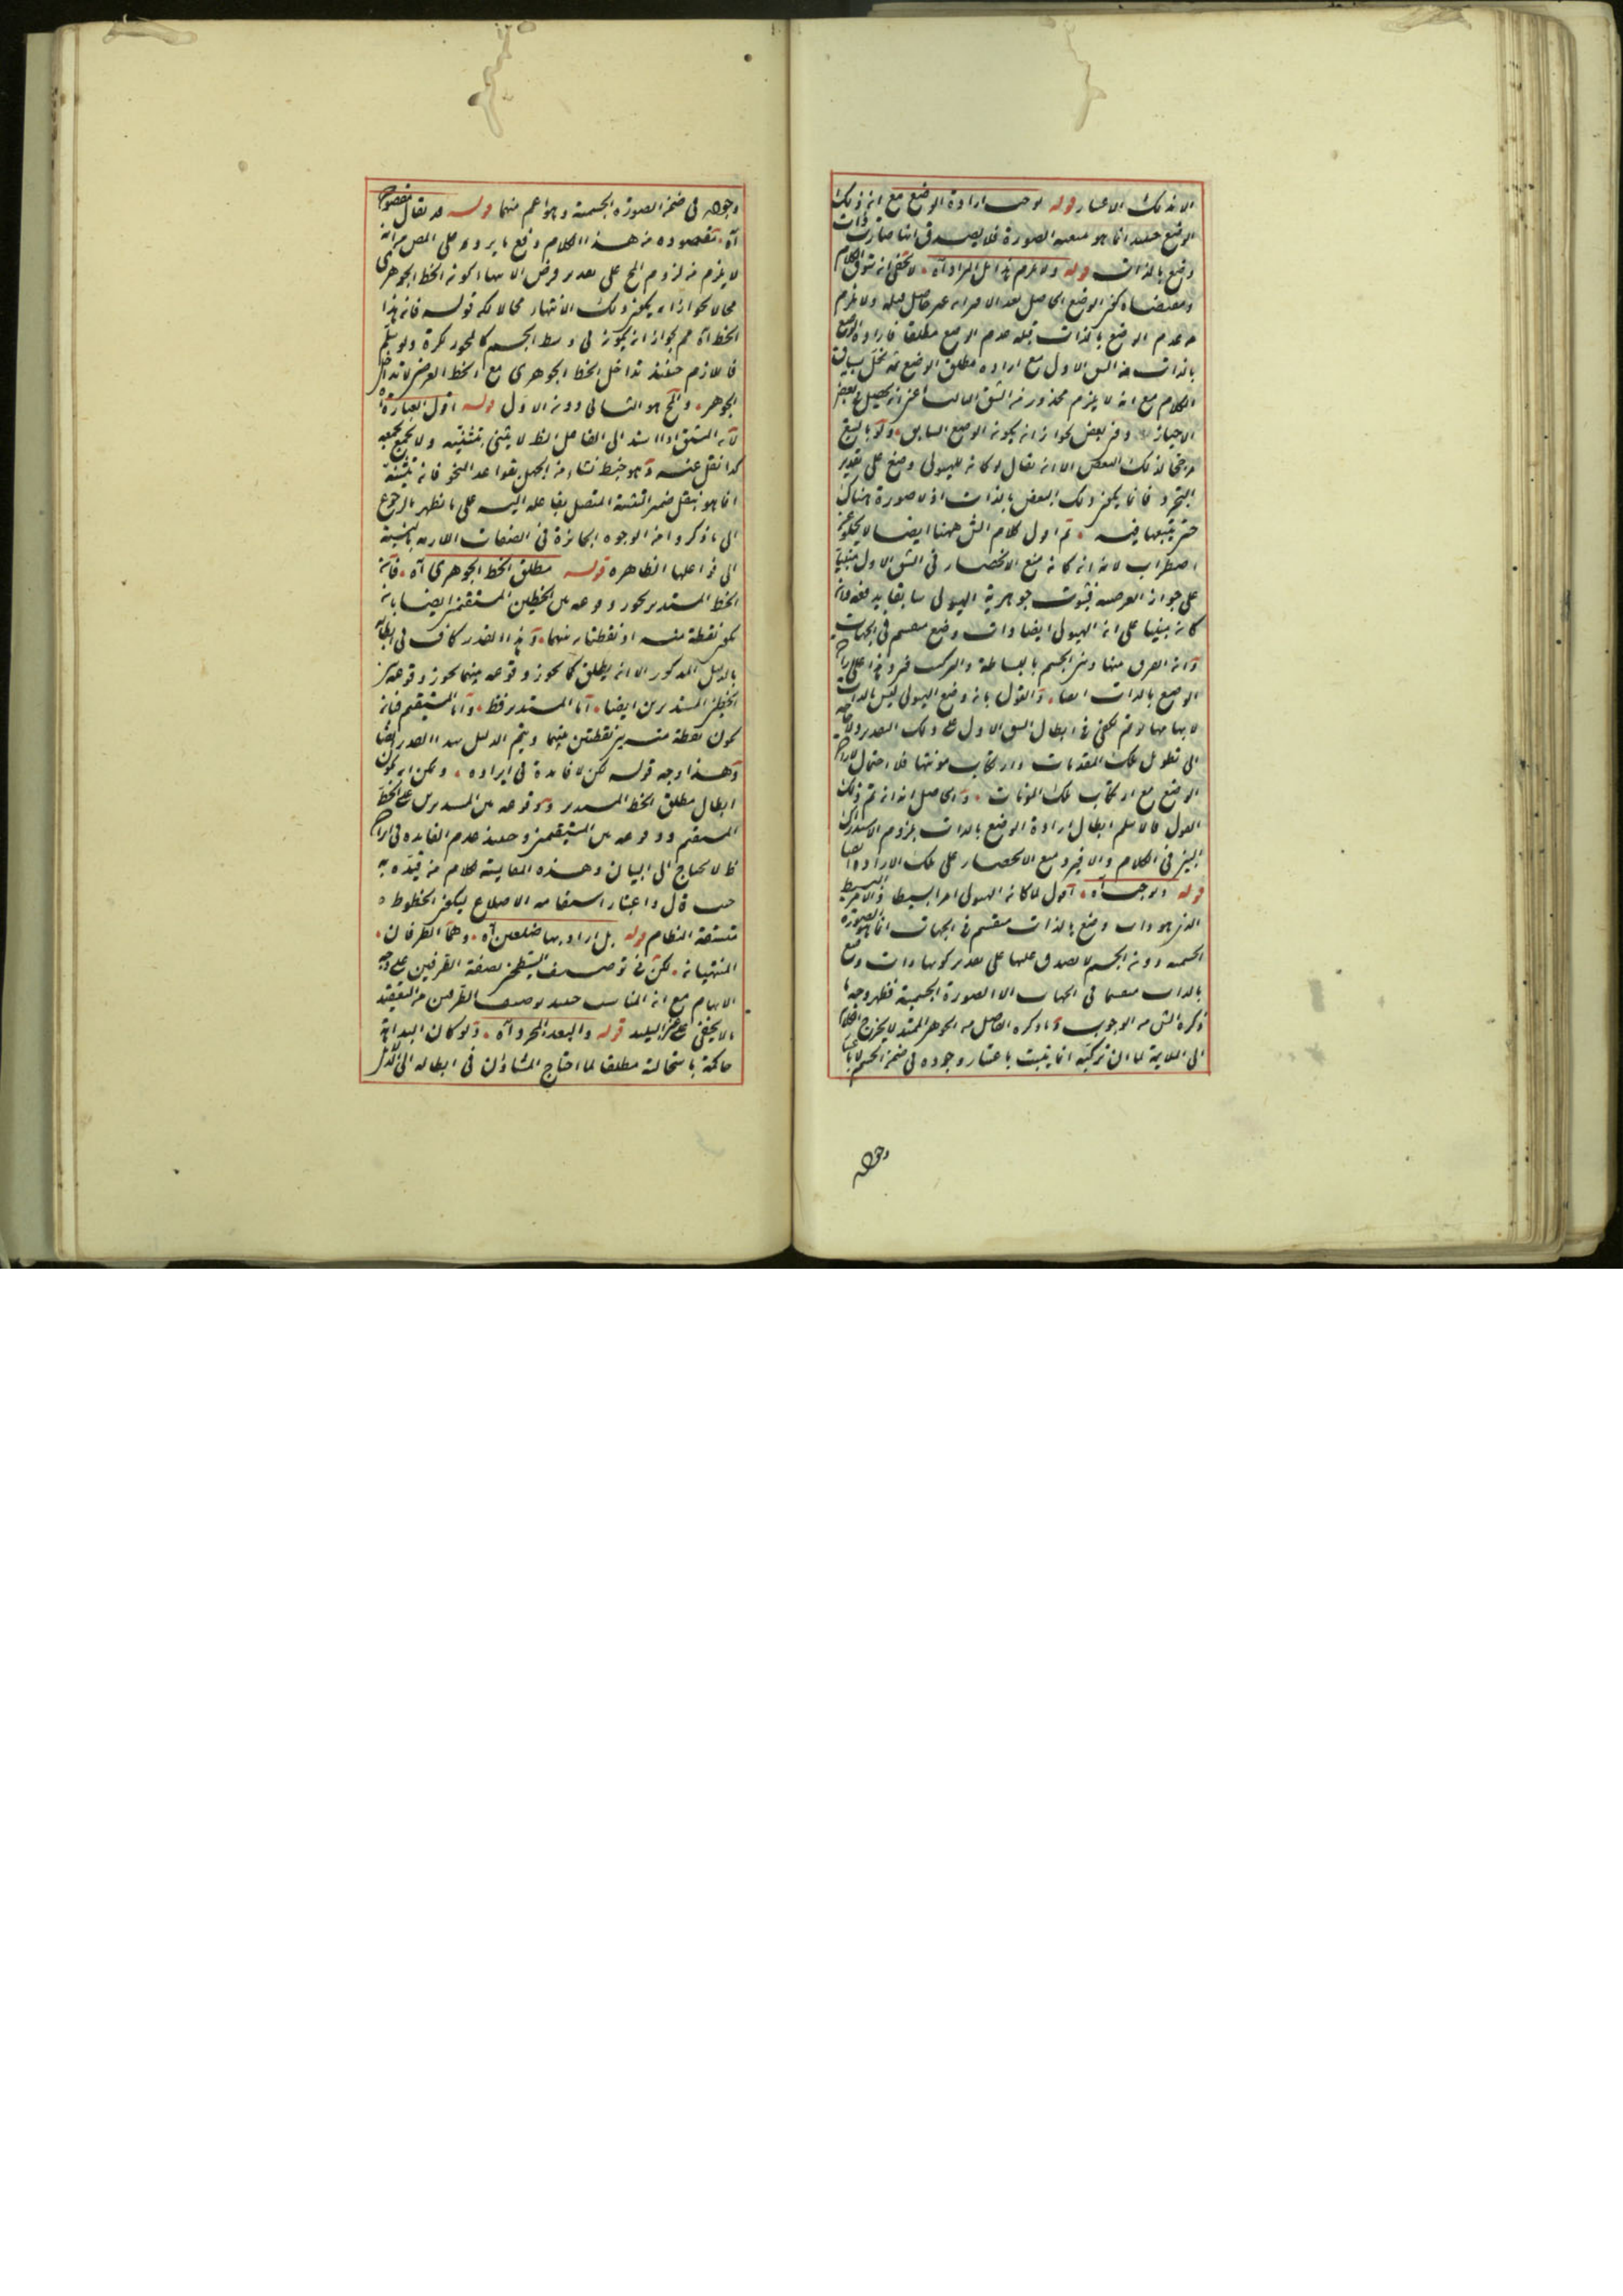 الا بذلك الاعتبار قوله يوجب ارادة الوضع مع ان ذلك
الوضع حينئذ انما هو بتبعية الصورة فلا يصدق انها صارت ذات
وضع بالذات قوله ولا يلزم بذا بل المراد آه لا يخفى ان سوق الكلام
الوضع الحاصل بعد الاقتران غير حاصل قبله ولا يلزم
من عدم الوضع بالذات قبله عدم الوضع مطلقا فارادة الوضع
بالذات من الشق الاول مع ارادة مطلق الوضع مخل بسياق
الكلام مع انه لا يلزم محذور من الشق الثالث اعني ان يحصل في بعض
الاحياز دون بعض لجواز ان يكون الوضع السابق
مرجحا لذلك البعض الا ان يقال لو كان للهيولى وضع على تقدير
التجرد فانما يكون ذلك البعض بالذات اذ لا صورة هناك
حتى يتبعها فيه ثم اقول كلام الش ههنا ايضا لا يخلو عن
اضطراب لانه ان كان منع الانحصار في الشق الاول مبنيا
على جواز العرضية فثبوت جوهرية الهيولى سابقا يدفعه فان
كان مبنيا على ان الهيولى ايضا ذات وضع منقسم في الجهات
وان الفرق بينها وبين الجسم بالبساطة والتركب
الوضع بالذات ايضا والقول بان وضع الهيولى ليس بالذات
يكفي في ابطال الشق الاول على ذلك التقدير ولا حاجة
الى تطويل تلك المقدمات وارتكاب مؤنتها فلا احتمال
الوضع مع ارتكاب تلك المؤنات والحاصل انه ان تم ذلك
القول فلا نسلم ابطال ارادة الوضع بالذات بلزوم الاستدراك
البين في الكلام والا فيرد منع الانحصار على تلك الارادة ايضا
قوله ويوجب آه اقول لما كان الهيولى امرا بسيطا والامر البسيط
الذي هو ذات وضع بالذات منقسم في الجهات انما هو الصورة
الجسمية دون الجسم لا يصدق عليها على تقدير كونها ذات وضع
بالذات منقسما في الجهات الا الصورة الجسمية فظهر وجه ما
ذكره الش من الوجوب وما ذكره الفاضل من الجوهر الممتد لا يخرج الكلام
الى الملايمة لما ان تركبه انما يثبت باعتبار وجوده في ضمن الجسم لا باعتبار
وجوده
وجوده في ضمن الصورة الجسمية وهو اعم منهما قوله قد يقال مقصوده
آه مقصوده من هذا الكلام دفع ما يرد على المص من انه
لا يلزم من لزوم المح على تقدير فرض الانتهاء كون الخط الجوهري
محالا لجواز ان يكون ذلك الانتهاء محالا لكن قوله فان هذا
الخط آه مم لجواز ان يكون في وسط الجسم كالمحور للكرة ولو سلم
فاللازم حينئذ تداخل الخط الجوهري مع الخط العرضي لا تداخل
الجوهر والمح هو الثاني دون الاول قوله اقول العبارة آه
لان المشتق اذا اسند الى الفاعل الظ لا يثنى بتثنيته ولا يجمع بجمعه
كذا نقل عنه وهو خبط نشاء من الجهل بقواعد النحو فان تثنيته
انما هو بنقل ضمير التثنية المتصل بفاعله اليه على ما يظهر بالرجوع
الى ما ذكروا من الوجوه الجائزة في الصفات بالنسبة
الى فواعلها الظاهرة قوله مطلق الخط الجوهري آه فان
الخط المستدير يجوز وقوعه بين الخطين المستقيمين ايضا بان
يكون نقطة منه او نقطتان بينهما وهذا القدر كاف في ابطاله
بالدليل المذكور الا ان يطلق كما يجوز وقوعه بينهما يجوز وقوعه بين
الخطين المستديرين ايضا اما المستدير فظ واما المستقيم فبان
يكون نقطة منه بين نقطتين منهما ويتم الدليل بهذا القدر ايضا
وهذا وجه قوله لكن لا فايدة في ايراده ويمكن ان يكون
ابطال مطلق الخط المستدير ووقوعه بين المستديرين على الخط
المستقيم ووقوعه بين المستقيمين وحينئذ عدم الفايدة في ايراده
ظ لا يحتاج الى البيان وهذه المقايسة كلام من قيده به
حيث قال واعتبار استقامة الاضلاع ليكون الخطوط
متسقة النظام قوله بل اراد بها ضلعين آه وهما الطرفان
المنتهيان لكن في توصيف السطحين بصفة الطرفين على وجه
الابهام مع ان المناسب حينئذ توصيف الطرفين من التعقيد
ما لا يخفى على غير البليد قوله والبعد المجرد آه ولو كان البداهة
حاكمة باستحالته مطلقا لما احتاج المشاؤن في ابطاله الى الدليل